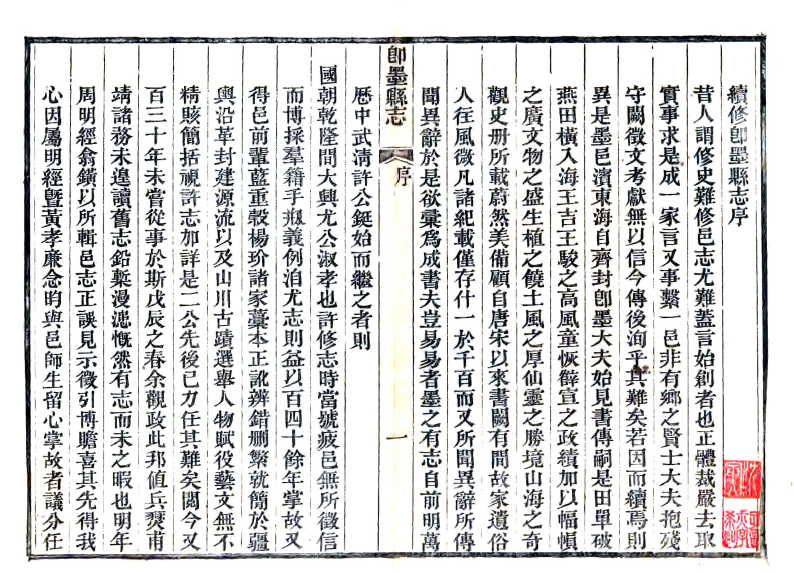 續修卽墨縣志序
昔人謂修史難修邑志尤難蓋言始創者也正體裁嚴去取
實事求是成一家言又事繫一邑非有鄉之賢士大夫抱殘
守闕徵文考獻無以信今傳後洵乎其難矣若因而續焉則
異是墨邑濱東海自齊封卽墨大夫始見書傳嗣是田單破
燕田橫入海王吉王駿之高風童恢薛宣之政績加以幅幀
之廣文物之盛生植之饒土風之厚仙靈之勝境山海之奇
觀史册所載蔚然美備顧自唐宋以來書闕有間故家遺俗
人往風微凡諸紀載僅存什一於千百而又所聞異辭所傳
聞異辭於是欲彙爲成書夫豈易易者墨之有志自前明萬
卽墨縣志
序
一
歷中武淸許公鋌始而繼之者則
國朝乾隆間大興尤公淑孝也許修志時當號疲邑無所徵信
而博採羣籍手裁義例洎尤志則益以百四十餘年掌故又
得邑前輩藍重穀楊玠諸家藁本正訛辨錯刪繁就簡於疆
輿沿革封建源流以及山川古蹟選舉人物賦役藝文無不
精賅簡括視許志加詳是二公先後已力任其難矣閱今又
百三十年未嘗從事於斯戊辰之春余觀政此邦值兵燹甫
靖諸務未遑讀舊志鉛槧漫漶慨然有志而未之暇也明年
周明經翕鐄以所輯邑志正誤見示徵引博贍喜其先得我
心因屬明經曁黃孝廉念昀與邑師生留心掌故者議分任